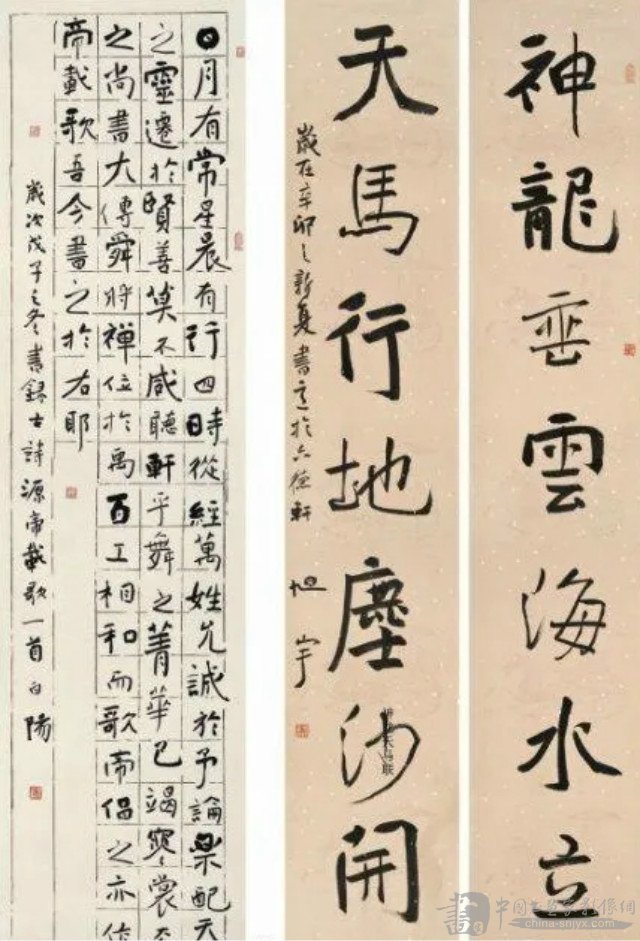 神龍雲海水立
天馬行地塵沙開
歲在辛卯之新夏書於六德軒
旭宇
日月有常星晨有行四時從經萬姓允誠於予論樂配天
之靈遷於賢善莫不咸聽軒乎舞之菁華已竭褰裳
之尚書大傳舜將禪位於禹百工相和而歌帝倡之亦作
帝載歌吾今書之於右耶
歲次戊子之冬書錄古詩源帝載歌一首白陽
中国书画家影像网
china-shjyx.com